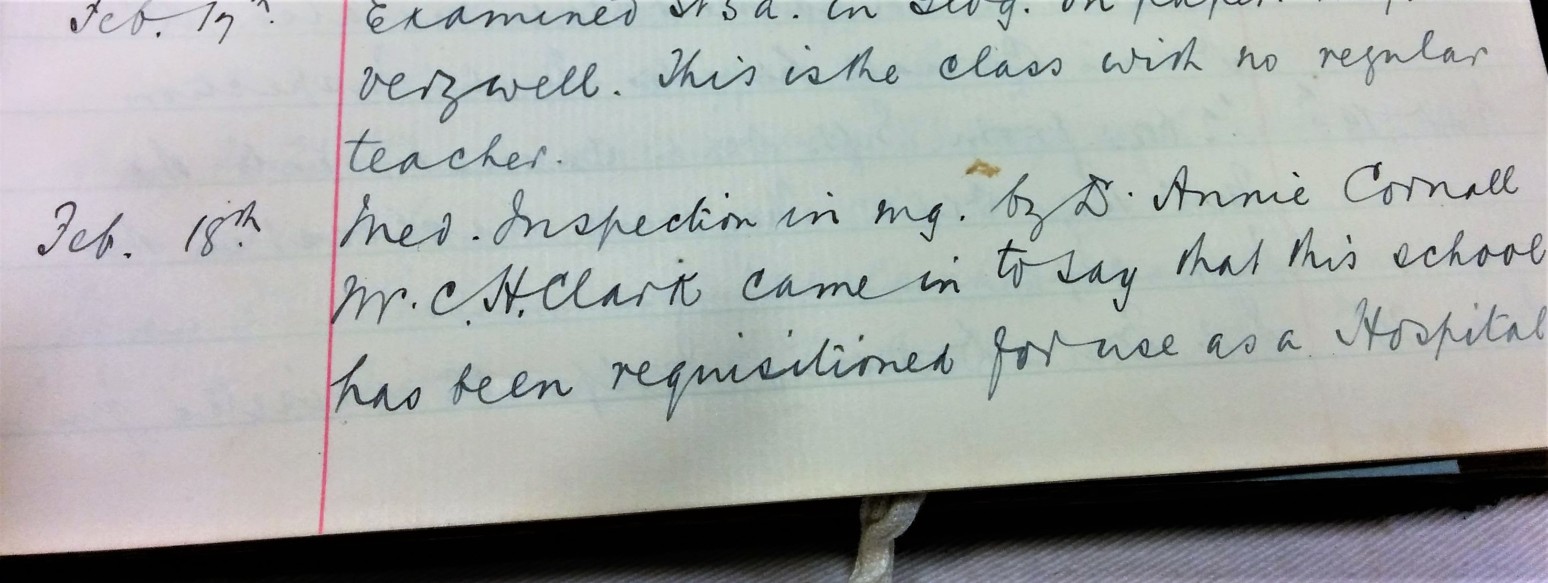 Feb. 17th. Examined St 3 a. in on paper.
very well. This is the class with no regular
teacher.
Feb. 18th. Med. Inspection in mg. by Dr. Annie Cornall
Mr. C. H. Clark came in to say that this school
has been requisitioned for use as a Hospital